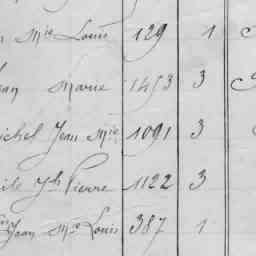 Mie Louis 129 1
Jean Marie 1453 3
Michel Jean Mie 1091 3
Jh Pierre 1122 3
Jean Mie Louis 387 1